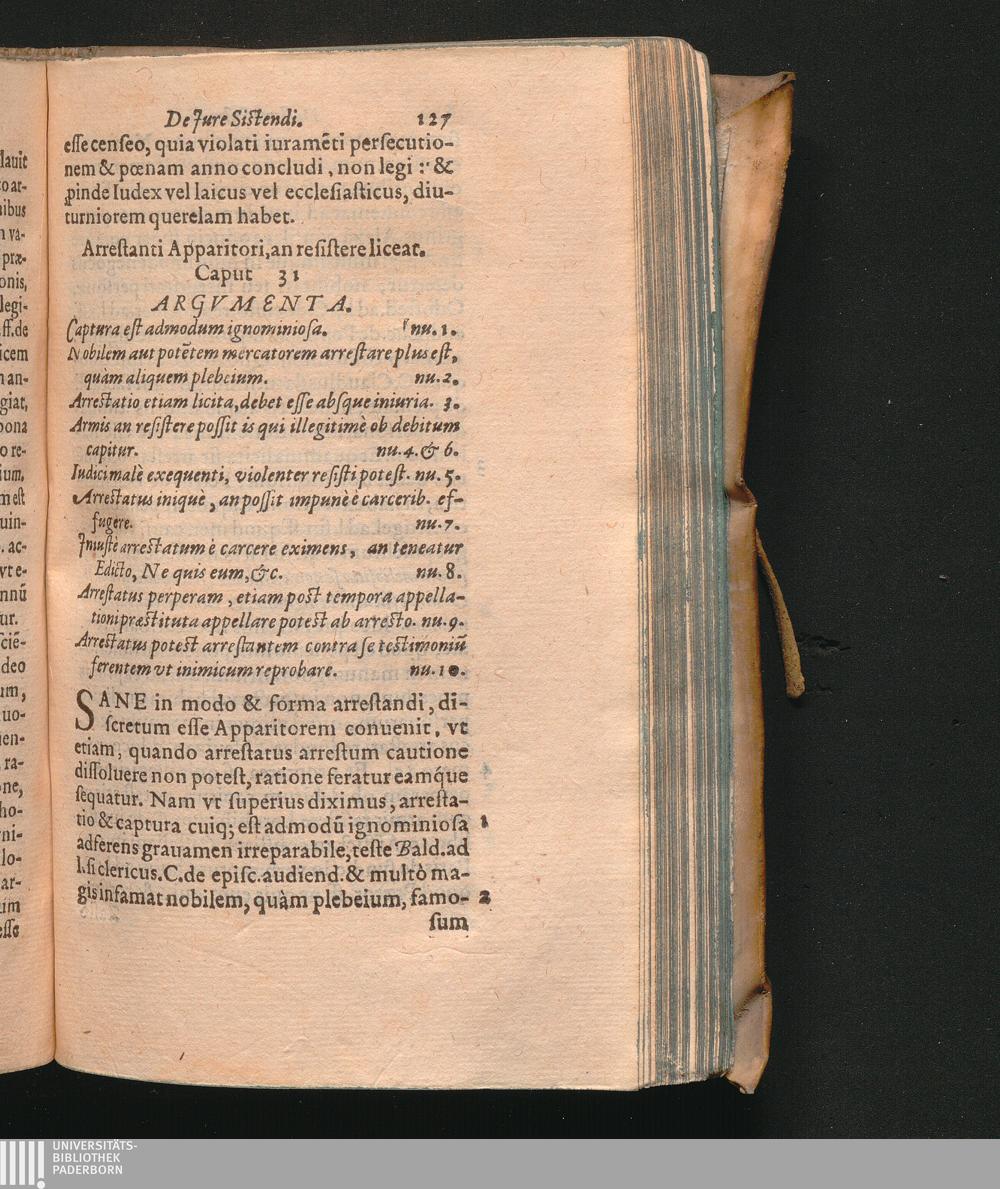 De Jure Sistendi. 127
esse censeo, quia violati iuramēti persecutio-
nem & pœnam anno concludi, non legi :' &
ꝓinde Iudex vel laicus vel ecclesiasticus, diu-
turniorem querelam habet.
Arrestanti Apparitori, an resistere liceat.
Caput 31
ARGVMENTA.
Captura est admodum ignominiosa. nu. 1.
Nobilem aut potētem mercatorem arrestare plus est,
quàm aliquem plebeium. nu. 2.
Arrestatio etiam licita, debet esse absque iniuria. 3.
Armis an resistere possit is qui illegitimè ob debitum
capitur. nu. 4. & 6.
Iudici malè exequenti, violenter resisti potest. nu. 5.
Arrestatus iniquè, an possit impunè è carcerib. ef-
fugere. nu. 7.
Iniustè arrestatum è carcere eximens, an teneatur
Edicto, Ne quis eum, &c. nu. 8.
Arrestatus perperam, etiam post tempora appella-
tioni præstituta appellare potest ab arresto. nu. 9.
Arrestatus potest arrestantem contra se testimoniū
ferentem vt inimicum reprobare. nu. 10.
SANE in modo & forma arrestandi, di-
scretum esse Apparitorem conuenit, vt
etiam, quando arrestatus arrestum cautione
dissoluere non potest, ratione feratur eamq́ue
sequatur. Nam vt superius diximus, arresta-
tio & captura cuiq; est admodū ignominiosa 1
adferens grauamen irreparabile, teste Bald. ad
l. si clericus. C. de episc. audiend. & multò ma-
gis infamat nobilem, quàm plebeium, famo- 2
sum
lauit
to ar-
nibus
n va-
præ-
onis,
legi-
ff. de
icem
n an-
giat,
bona
o re-
ium,
m est
uin-
. ac-
vt e-
nnū
ur.
sciē-
deo
um,
uo-
ien-
ra-
one,
ho-
rni-
lo-
ar-
um
esse
UNIVERSITÄTS-
BIBLIOTHEK
PADERBORN